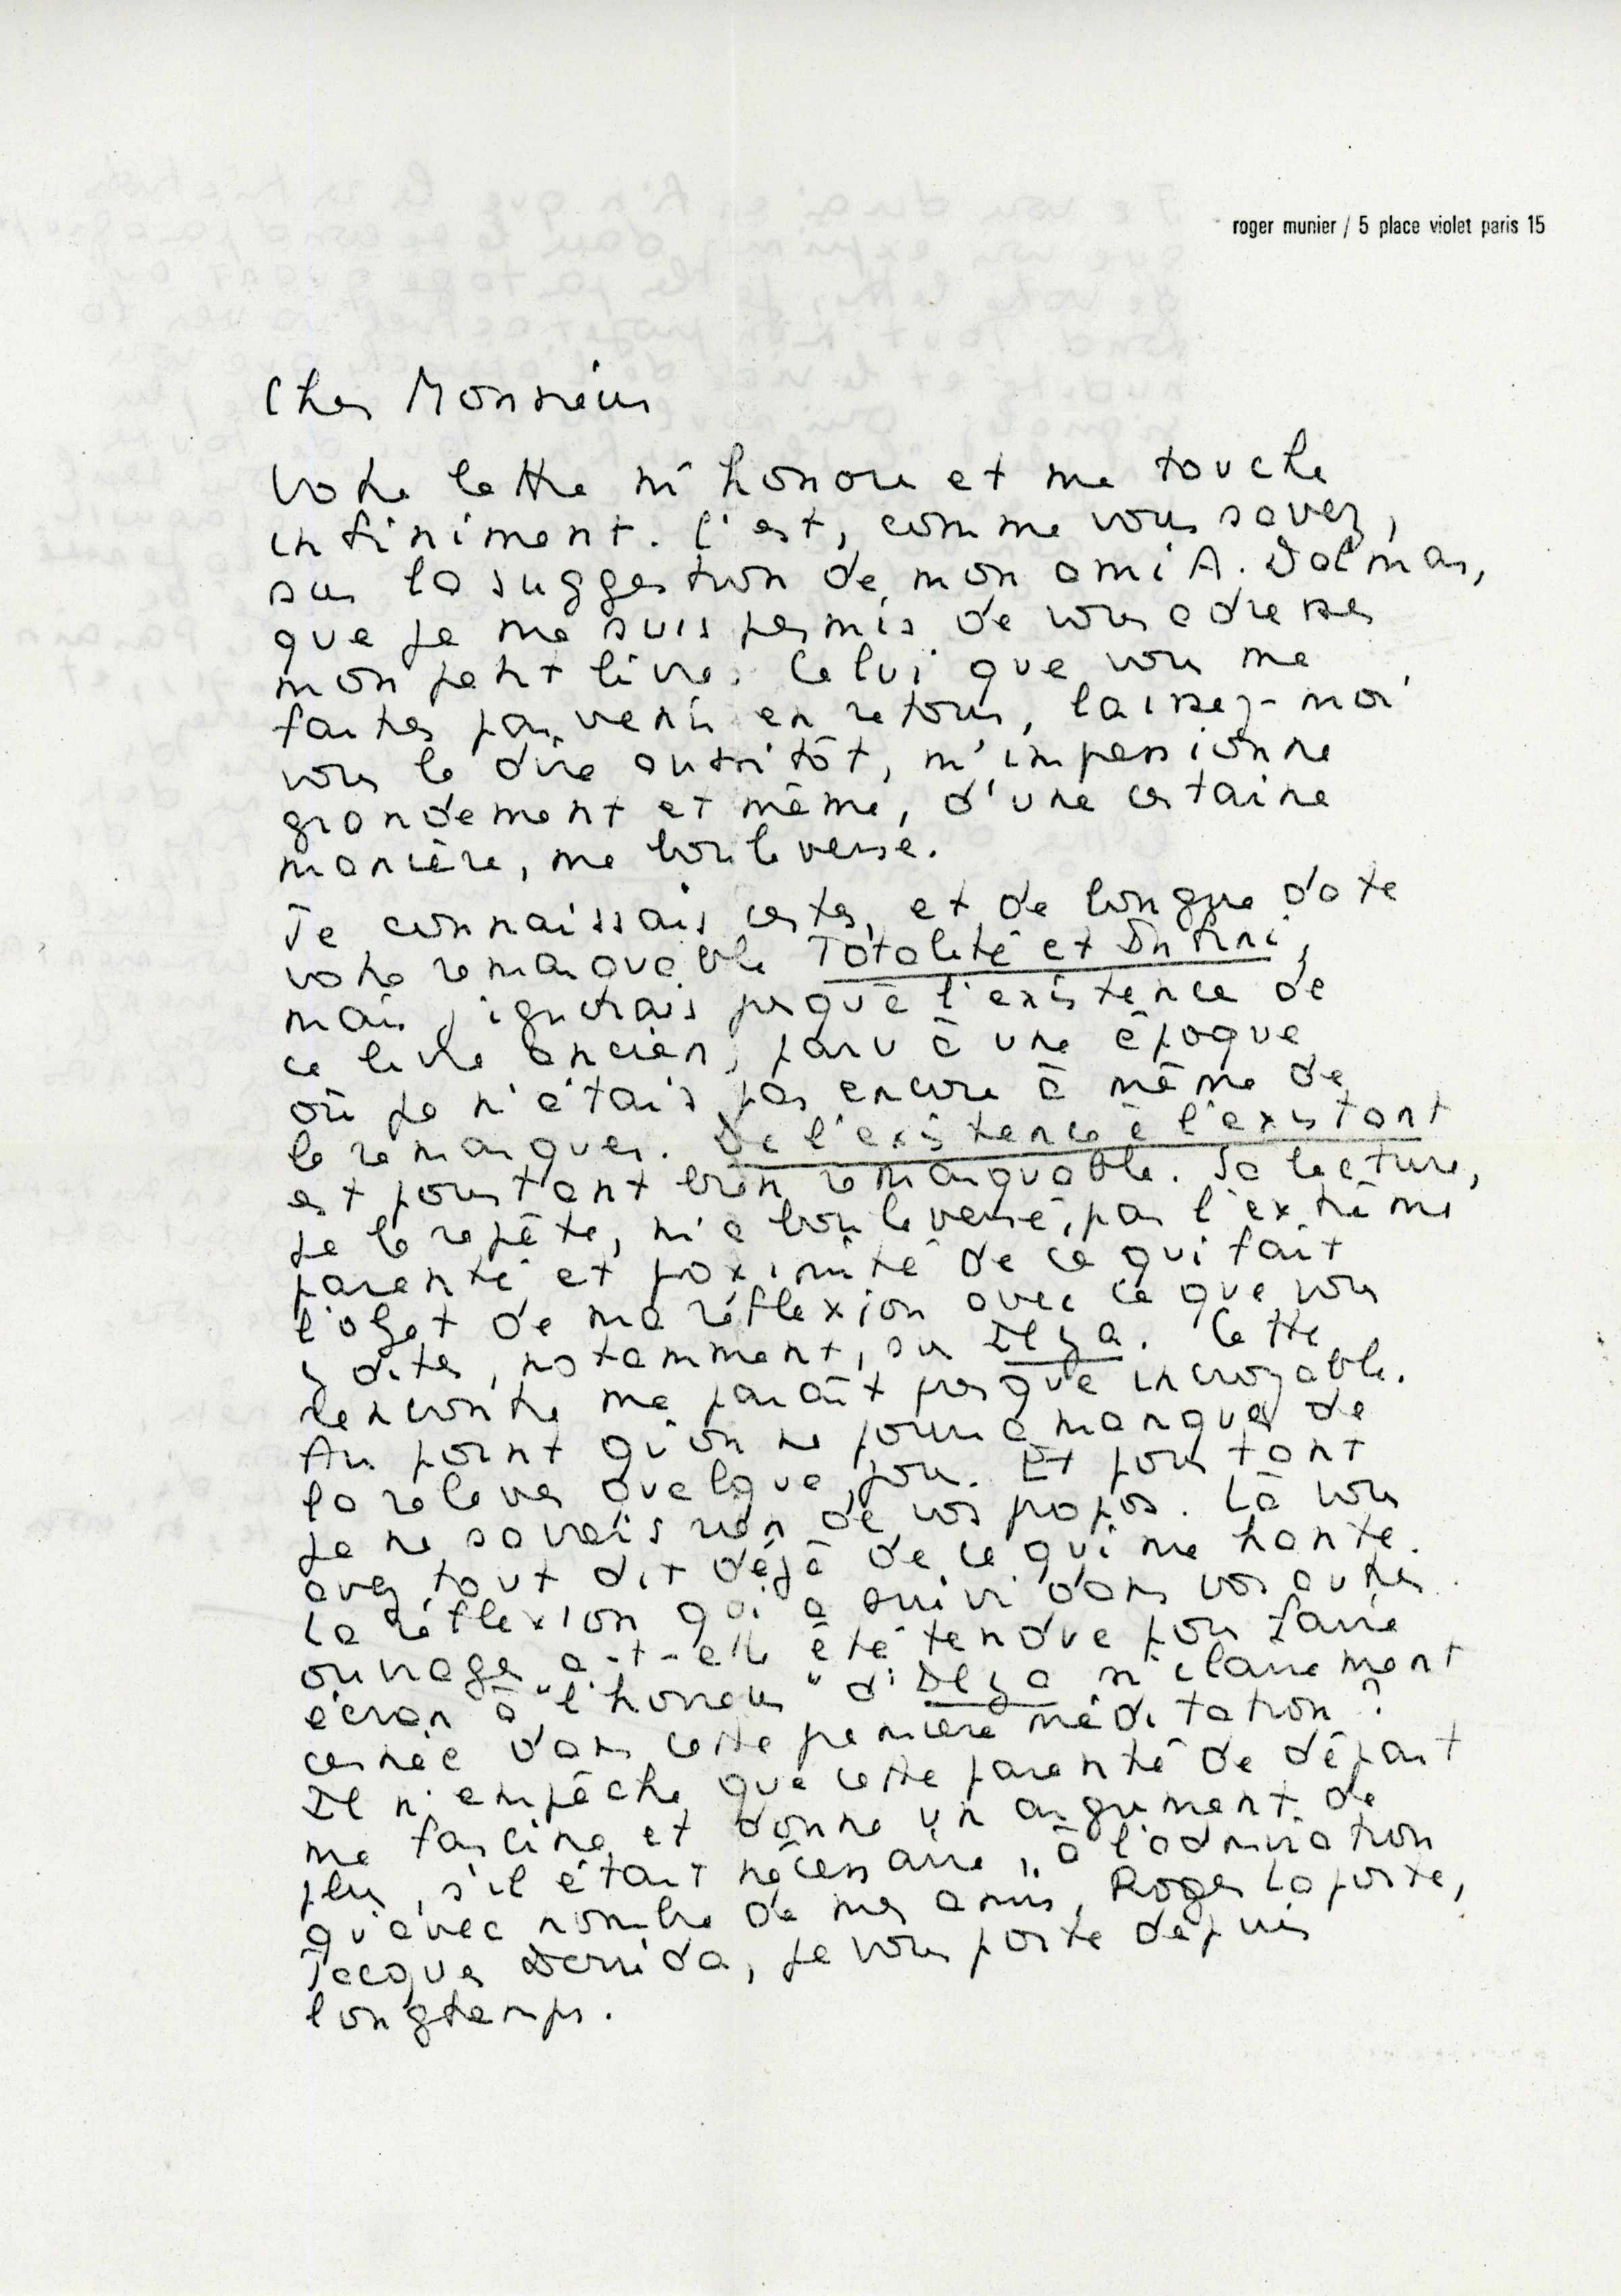 roger munier / 5 place violet paris 15
Cher Monsieur
Votre lettre m'honore et me touche
infiniment. C'est, comme vous savez,
sur la suggestion de mon ami A. Dalmas,
que je me suis permis de vous adresser
mon petit livre. Celui que vous me
faites parvenir en retour, laissez-moi
vous le dire aussitôt, m'impressionne
grandement et même, d'une certaine
manière, me bouleverse.
Je connaissais certes, et de longue date
votre remarquable Totalité et Infini,
mais j'ignorais jusqu'à l'existence de
ce livre ancien, paru à une époque
où je n'étais pas encore à même de
le remarquer. De l'existence à l'existant
est pourtant bien remarquable. Sa lecture,
je le répète, m'a bouleversé, par l'extrême
parenté et proximité de ce qui fait
l'objet de ma réflexion avec ce que vous
y dites, notamment, sur Il y a. Cette
rencontre me paraît presque incroyable.
Au point qu'on ne pourra manquer de
la relever quelque jour. Et pourtant
je ne savais rien de vos propos. Là vous
avez tout dit déjà de ce qui me hante.
La réflexion qui a suivi dans vos autres
ouvrages a-t-elle été tendue pour faire
écran à "l'horreur" d'Il y a si clairement
cernée dans cette première méditation ?
Il n'empêche que cette parenté de départ
me fascine et donne un argument de
plus, s'il était nécessaire, à l'admiration
qu'avec nombre de mes amis, Roger Laporte,
Jacques Derrida, je vous porte depuis
longtemps.